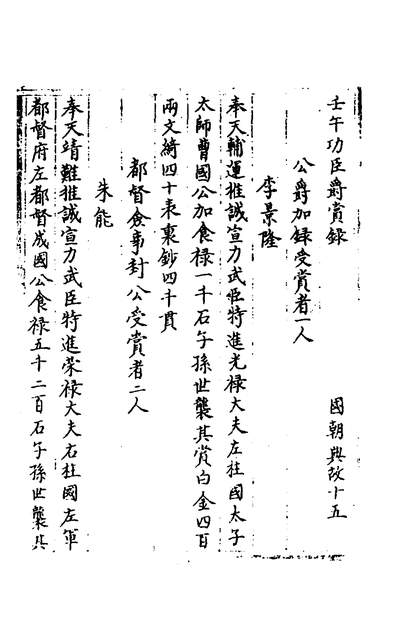 壬午功臣爵賞録 國朝典故十五
公爵加録受賞者一人
李景隆
奉天輔運推誠宣力武臣特進光禄大夫左柱國太子
太師曹國公加食禄一千石子孫世襲其賞白金四百
兩文綺四十表裏鈔四千貫
都督僉事封公受賞者二人
朱能
奉天靖難推誠宣力武臣特進榮禄大夫右柱國左軍
都督府左都督成國公食禄五千二百石子孫世襲其